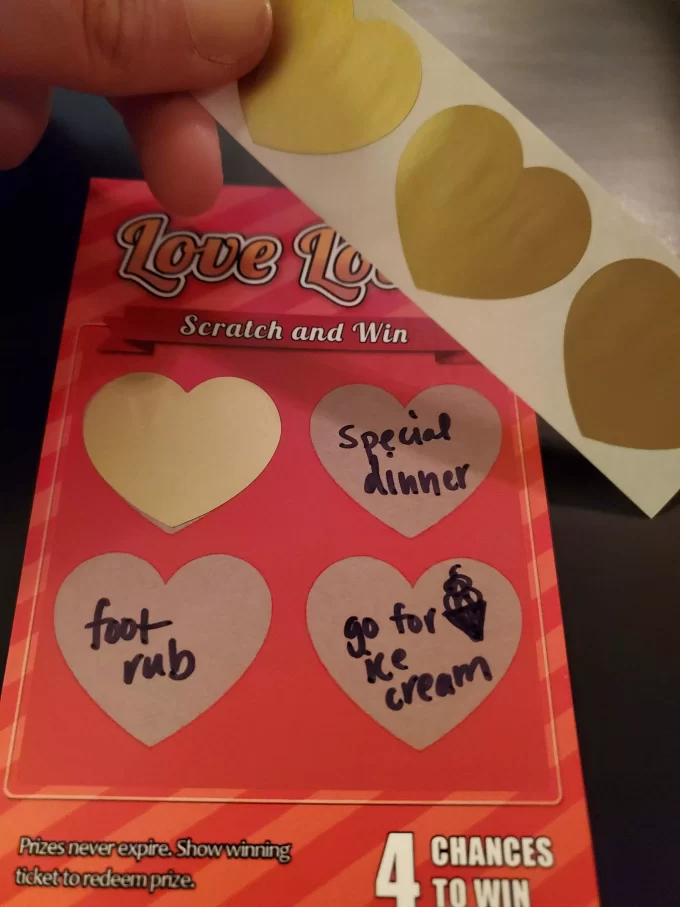 Love Lo
Scratch and Win
special
dinner
foot
rub
go for
ice
cream
Prizes never expire. Show winning
ticket to redeem prize.
4 CHANCES
TO WIN